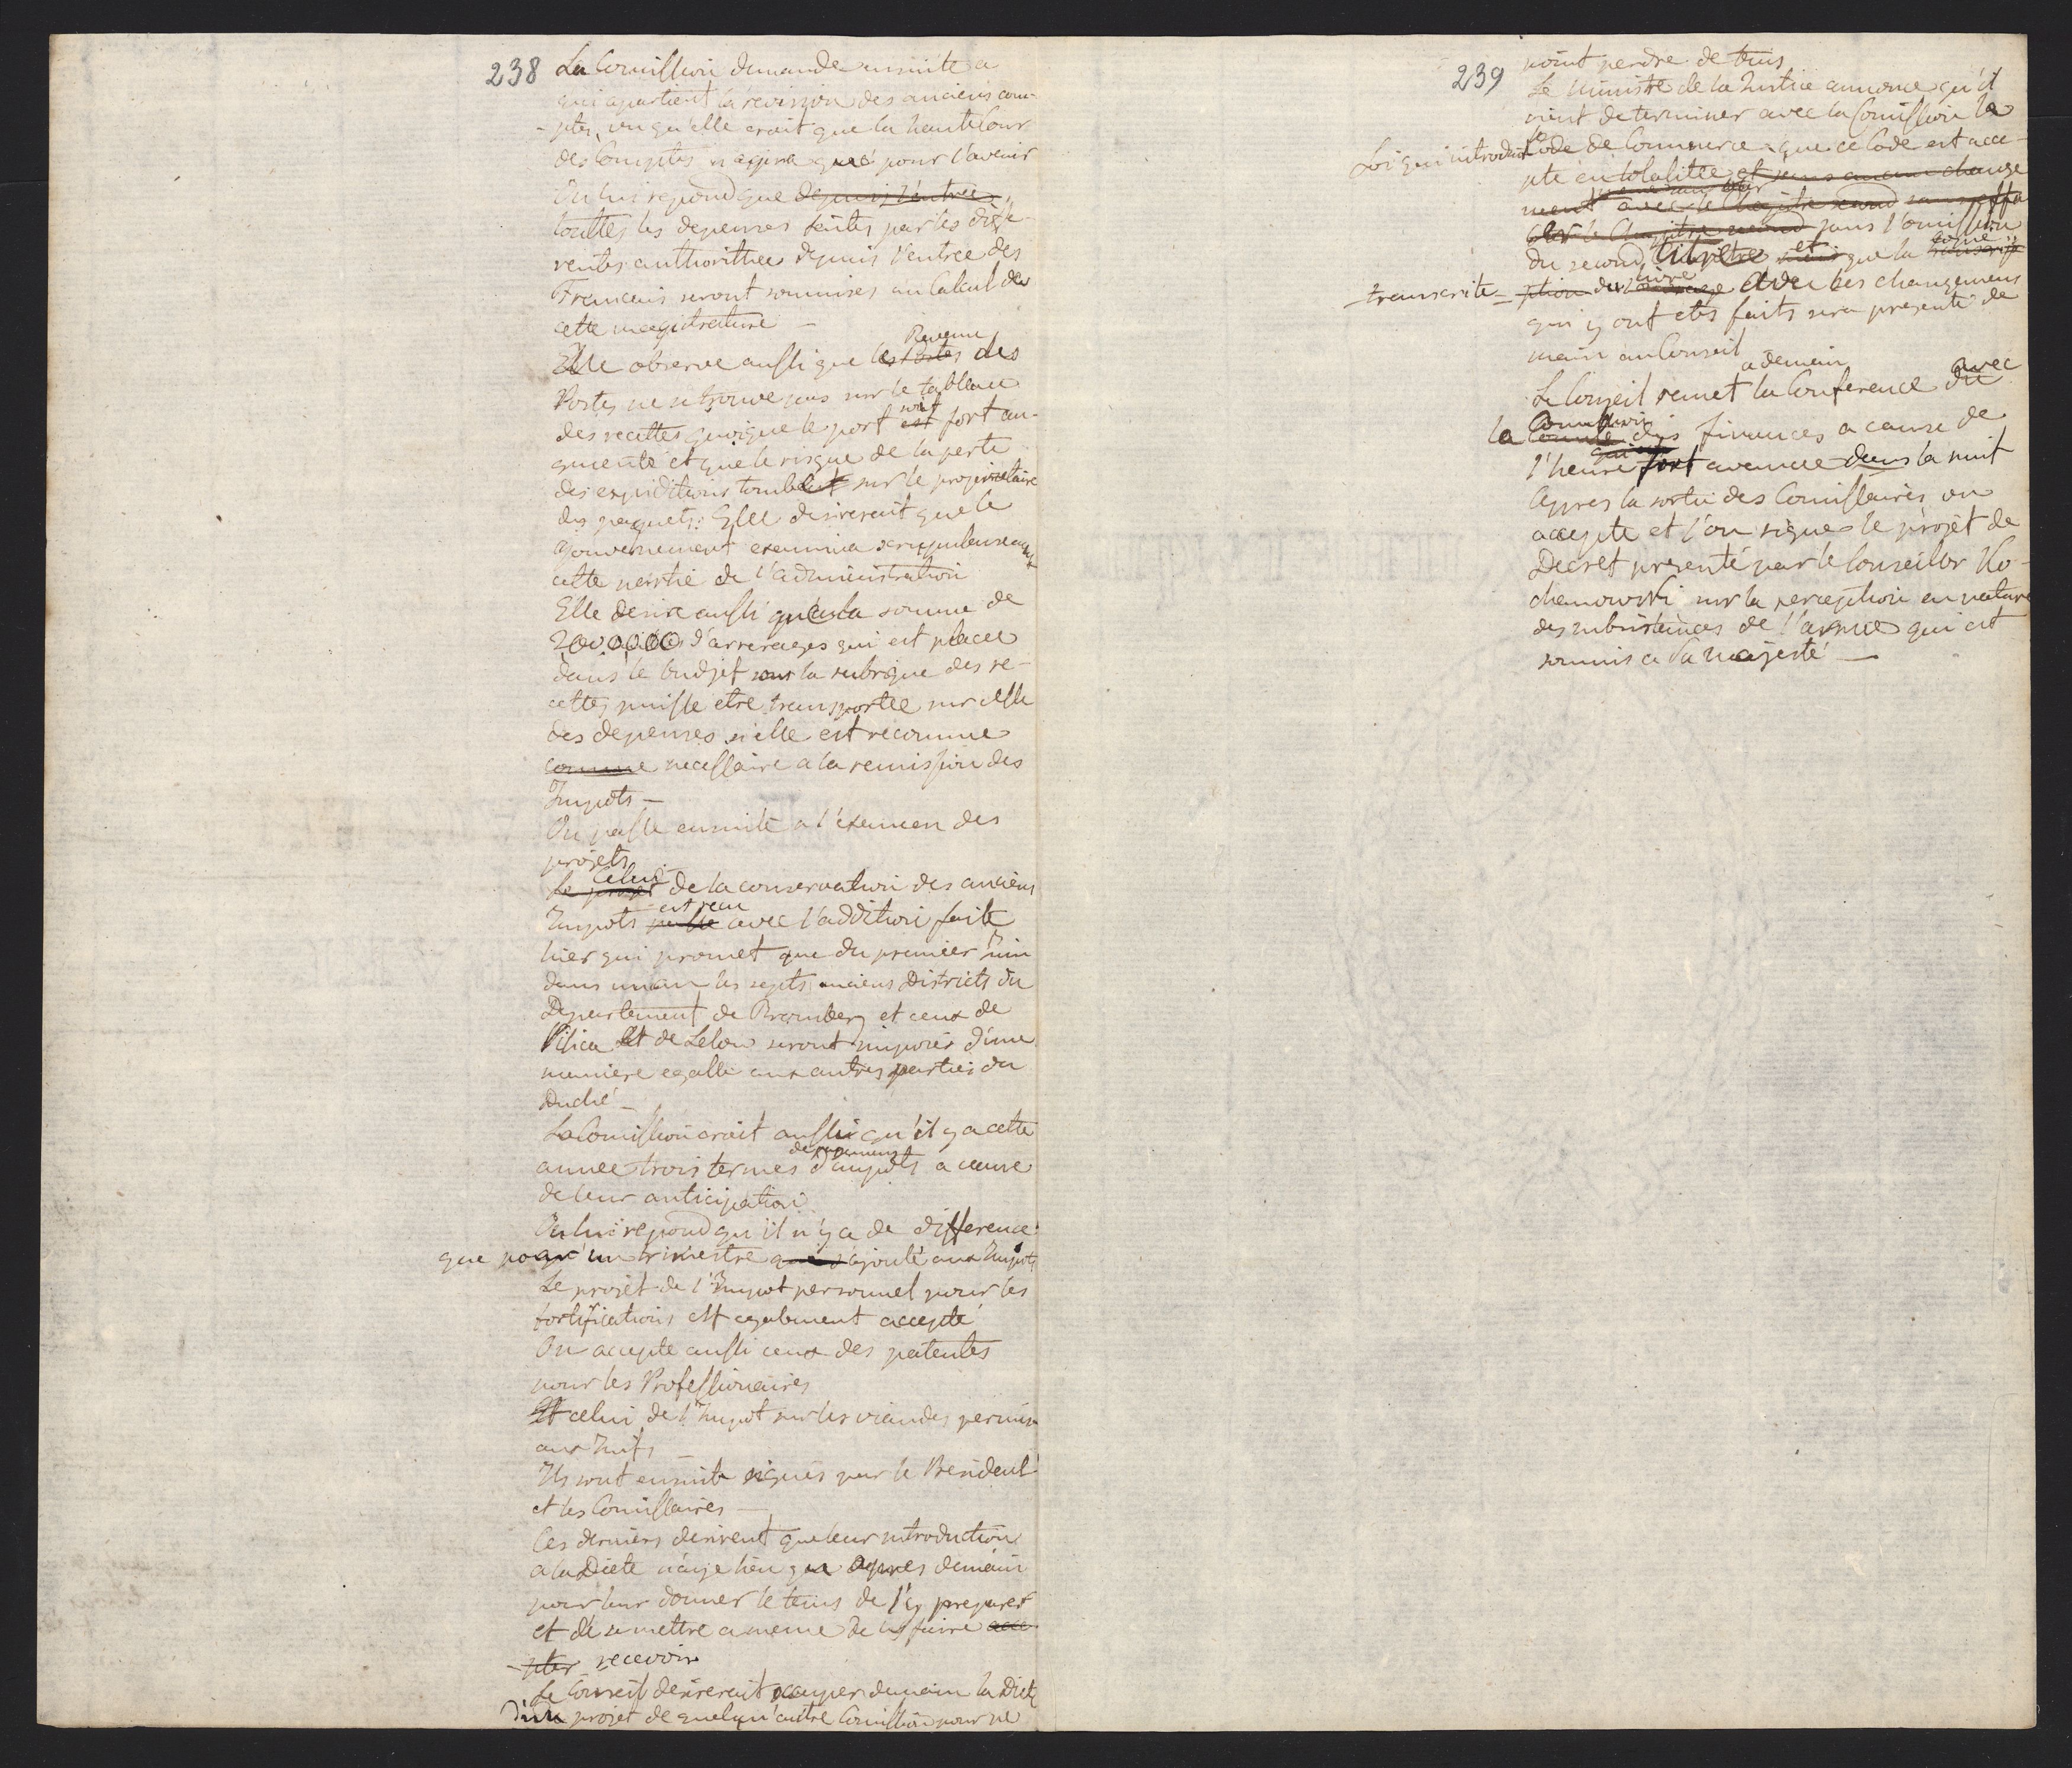 238 La Comission demande ensuite a
qui apartient la revision des anciens com-
-ptes, vu qu'elle croit que la haute Cour
des Comptes n'agira que pour l'avenir
On lui repond que depuis l'entree
touttes les depenses faites par les diffe-
rentes authorithees depuis l'entree des
Francais seront soumises au Calcul de
cette magistrature —
Revenu
Elle observe aussi que les Postes des
Postes ne se trouve pas sur le tableau
des recettes quoique le port est soit fort au-
gmenté et que le risque de la perte
des expeditions tombent sur le proprietaire
des paquets. Elle desirerait que le
Gouvernement examina scrupuleusement
cette partie de l'administration
Elle desire aussi que la somme de
2,000,000 d'arrerages qui est placee
dans le budjet sous la rubrique des re-
cettes puisse etre transportee sur celle
des depenses si elle est reconnue
comme necessaire a la remission des
Impots —
On passe ensuite a l'examen des
projets
Celui
Le projet de la conservation des anciens
est recu
Impots passe avec l'addition faite
hier qui promet que du premier Juin
dans un an les septs anciens Districts du
Departement de Bromberg et ceux de
Pilica et de Lelow seront imposés d'une
maniere egalle aux autres parties du
Duché —
La Comission croit aussi qu'il y a cette
de payemens
annee trois termes d'impots a cause
de leur anticipation
On lui repond qu'il n'y a de difference
que pour un trimestre ajouté aux Impots
Le projet de l'Impot personnel pour les
fortifications est egalement accepté
On accepte aussi ceux des patentes
pour les Professionaires
Et celui de l'Impot sur les viandes permis
aux Juifs —
Ils sont ensuite signés par le President
et les Comissaires —
Ces derniers desirent que leur introduction
a la Diete n'aye lieu que apres demain
pour leur donner le tems de s'y preparer
et de se mettre a meme de les faire acce-
-pter recevoir
Le Conseil desirerait occuper demain la Diete
d'un projet de quelqu'autre Comission pour ne
239 point perdre de tems
Le Ministre de la Justice annonce qu'il
vient de terminer avec la Comission la
Loi qui introduit le Code de Commerce que ce Code est acce-
pté en totalitée et sans aucun change
ment avec le Chapitre second sans effa
cer le Chapitre second sans l'omission
du second titre et que la copie
transcrite = ption du livre avec les changemens
qui y ont etes faits sera presenté de
main au Conseil
a demain
Le Conseil remet la Conference avec
Comission
la Comité des finances a cause de
l'heure fort avancee dans la nuit
Apres la sortie des Comissaires on
accepte et l'on signe le projet de
Decret presenté par le Conseiller Ko-
chanowski sur la perception en nature
des subsistances de l'armee qui est
soumis a Sa Majesté —